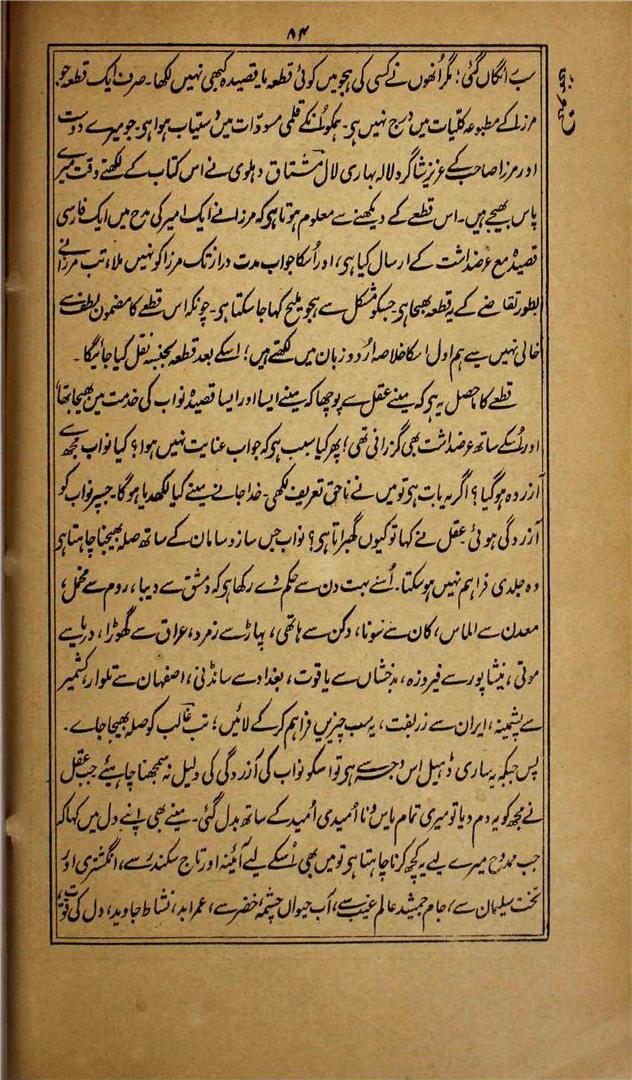 ۸۴
سے انگاں گئی؛ مگر اُنھوں نے کسی کی ہجو میں کوئی قطعہ یا قصیدہ کبھی نہیں لکھا۔ صرف ایک قطعہ جو
مرزا کے مطبوعہ کلّیات میں درج نہیں ہی۔ ہمکو اُنکے قلمی مسوّدات میں دستیاب ہوا ہی۔ جو میرے دوست
اور مرزا صاحب کے عزیز شاگرد لالہ بہاری لال مشتاق دہلوی نے اس کتاب کے لکھتے وقت میرے
پاس بھیجے ہیں۔ اس قطعے کے دیکھنے سے معلوم ہوتا ہی کہ مرزا نے ایک امیر کی مدح میں ایک فارسی
قصیدہ مع عرضداشت کے ارسال کیا ہی، اور اُسکا جواب مدت دراز تک مرزا کو نہیں ملا، تب مرزا نے
بطور تقاضے کے یہ قطعہ بھیجا ہی۔ جسکو مشکل سے ہجو ملیح کہا جا سکتا ہی۔ چونکہ اس قطعے کا مضمون لطف سے
خالی نہیں ہے ہم اول اسکا خلاصہ اُردو زبان میں لکھتے ہیں؛ اسکے بعد قطعہ بجنسہٖ نقل کیا جائیگا۔
قطعے کا حاصل یہ ہی کہ مینے عقل سے پوچھا کہ مینے ایسا اور ایسا قصیدہ نواب کی خدمت مین بھیجا تھا
اور اُسکے ساتھ عرضداشت بھی گزرانی تھی؛ پھر کیا سبب ہی کہ جواب عنایت نہیں ہوا؟ کیا نواب مجھ سے
آزردہ ہو گیا؟ اگر یہ بات ہی تو میں نے ناحق تعریف لکھی۔ خدا جانے مینے کیا لکھدیا ہو گا۔ جسپر نواب کو
آزردگی ہوئی۔ عقل نے کہا تو کیوں گھبراتا ہی؟ نواب جس ساز و سامان کے ساتھ صلہ بھیجنا چاہتا ہی
وہ جلدی فراہم نہیں ہو سکتا۔ اُسنے بہت دن سے حکم دے رکھا ہی کہ دمشق سے دیبا، روم سے مخمل،
معدن سے الماس، کان سے سونا، دکن سے ہاتھی، پہاڑ سے زمرد، عراق سے گھوڑا، دریا سے
موتی، نیشاپور سے فیروزہ، بدخشاں سے یاقوت، بغداد سے سانڈنی، اصفہان سے تلوار، کشمیر
سے پشمینہ، ایران سے زربفت، یہ سب چیزیں فراہم کر کے لائیں؛ تب غالب کو صلہ بھیجا جاے۔
پس جبکہ یہ ساری ڈھیل اس وجہ سے ہی تو اسکو نواب کی آزردگی کی دلیل نہ سمجھنا چاہیئے جب عقل
نے مجھ کو یہ دم دیا تو میری تمام یاس و نا اُمیدی اُمید کے ساتھ بدل گئی۔ مینے بھی اپنے دل میں کہا کہ
جب ممدوح میرے لیے یہ کچھ کرنا چاہتا ہی تو میں بھی اُسکے لیے آئینہ اور تاج سکندر سے، انگشتری اور
تخت سلیمان سے، جام جمشید عالم غیب سے، آب حیواں چشمۂ خضر سے، عمر ابد، نشاط جاوید، دل کی قوت،